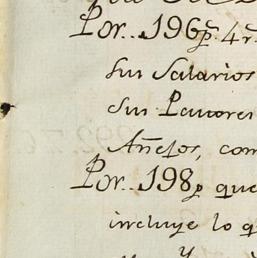 Por.. 196p. 4r.
sus Salarios
sus Pastores
Añejos, com
Por.. 198p que
incluye lo q
y